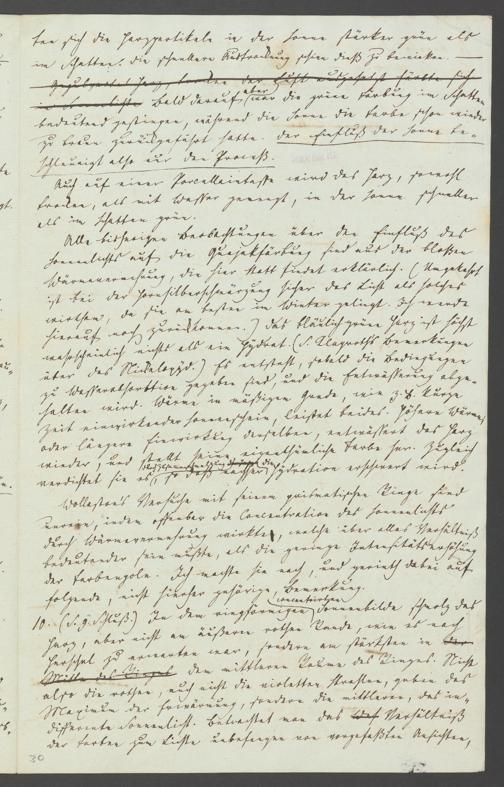 ten sich die Harzpartikeln in der Sonne stärker grün als
im Schatten. die schnellere Austrocknung schien dieß zu bewirken. —
Bald darauf aber war die grüne Färbung im Schatten
bedeutend gestiegen, während die Sonne die Farbe schon wieder
zu braun zurückgeführt hatte. der Einfluß der Sonne be-
schleunigt also nur den Proceß.
Auch auf einer Porcellaintasse wird das Harz, sowohl
trocken, als mit Wasser gemengt, in der Sonne schneller
als im Schatten grün.
Alle bisherigen Beobachtungen über den Einfluß des
Sonnenlichts auf die Guajakfärbung sind aus der bloßen
Wärmevermehrung, die hier statt findet erklärlich. (Umgekehrt
ist bei der Hornsilberschwärzung sicher das Licht als solches
wirksam, da sie am besten im Winter gelingt. Ich werde
hierauf noch zurückkommen.) das bläulichgrüne Harz ist höchst
wahrscheinlich nichts als ein Hydrat (s. Klaproths Bemerkungen
über das Nickeloxyd.) Es entsteht, sobald die Bedingungen
zu Wasserabsorbtion gegeben sind, und die Entwässerung abge-
halten wird. Wärme in mäßigem Grade, wie z.B. kürze
Zeit einwirkender Sonnenschein, leistet beides. Höhere Wärme,
oder längere Einwirkung derselben, entwässert das Harz
wieder, und stellt seine eigenthümliche Farbe her. Zugleich
verdichtet sie es, so daß Hydration erschwert wird.
Wollaston's Versuche mit seinem prismatischen Ringe sind
unrein, indem offenbar die Concentration des Sonnenlichts
durch Wärmevermehrung wirkte, welche über alles Verhältniß
bedeutender sein mußte, als die geringe Intensitätserhöhung
der Farbenpole. Ich machte sie nach, und gerieth dabei auf
folgende, nicht hierher gehörige, Bemerkung.
10. (s. g. Schluß.) In dem ringförmigen Sonnenbilde schmolz das
Harz, aber nicht am äußeren rothen Rande, wie es nach
Herschel zu erwarten war, sondern am stärksten in
dem mittleren Raume des Ringes. Nicht
also die rothen, auch nicht die violetten Strahlen, gaben das
Maximum der Erwärmung, sondern die mittleren, das in-
differente Sonnenlicht. Betrachtet man das Verhältniß
der Farben zum Lichte unbefangen von vorgefaßten Ansichten,
30